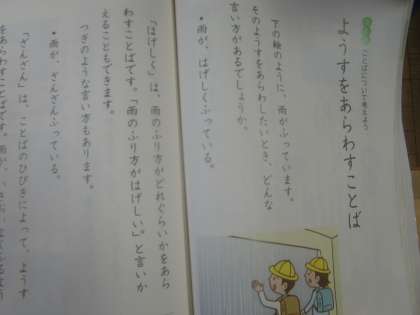 ことばについて考えよう
ようすをあらわすことば
下の絵のように、雨がふっています。
そのようすをあらわしたいとき、どんな
言い方があるでしょうか。
• 雨が、はげしくふっている。
「はげしく」は、雨のふり方がどれぐらいかをあら
わすことばです。「雨のふり方がはげしい。」と言いか
えることもできます。
つぎのような言い方もあります。
• 雨が、ざんざんふっている。
「ざんざん」は、ことばのひびきによって、ようす
をあらわすことばです。雨が、